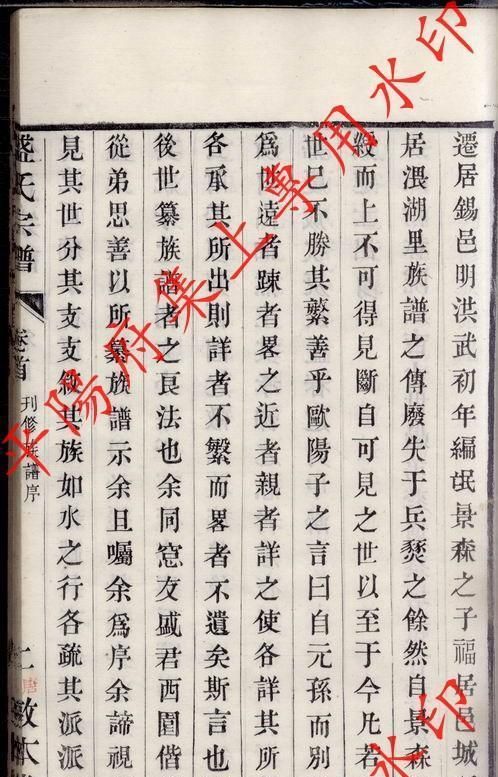 遷居錫邑明洪武初年編氓景森之子福居邑城
居渨湖里族譜之傳廢失于兵燹之餘然自景森
而上不可得見斷自可見之世以至于今凡若
世已不勝其繁善乎歐陽子之言曰自元孫而別
爲遠者踈者畧之近者親者詳之使各詳其所
各承其所出則詳者不繁而畧者不遺矣斯言也
後世纂族譜者之良法也余同窓友盛君西園偕
從弟思善以所纂族譜示余且囑余爲序余諦視
見其世分其支支敘其族如水之行各疏其派派
盛氏宗譜
卷首
刊修族譜序
二
敦本
平陽府集上專用水印
水印